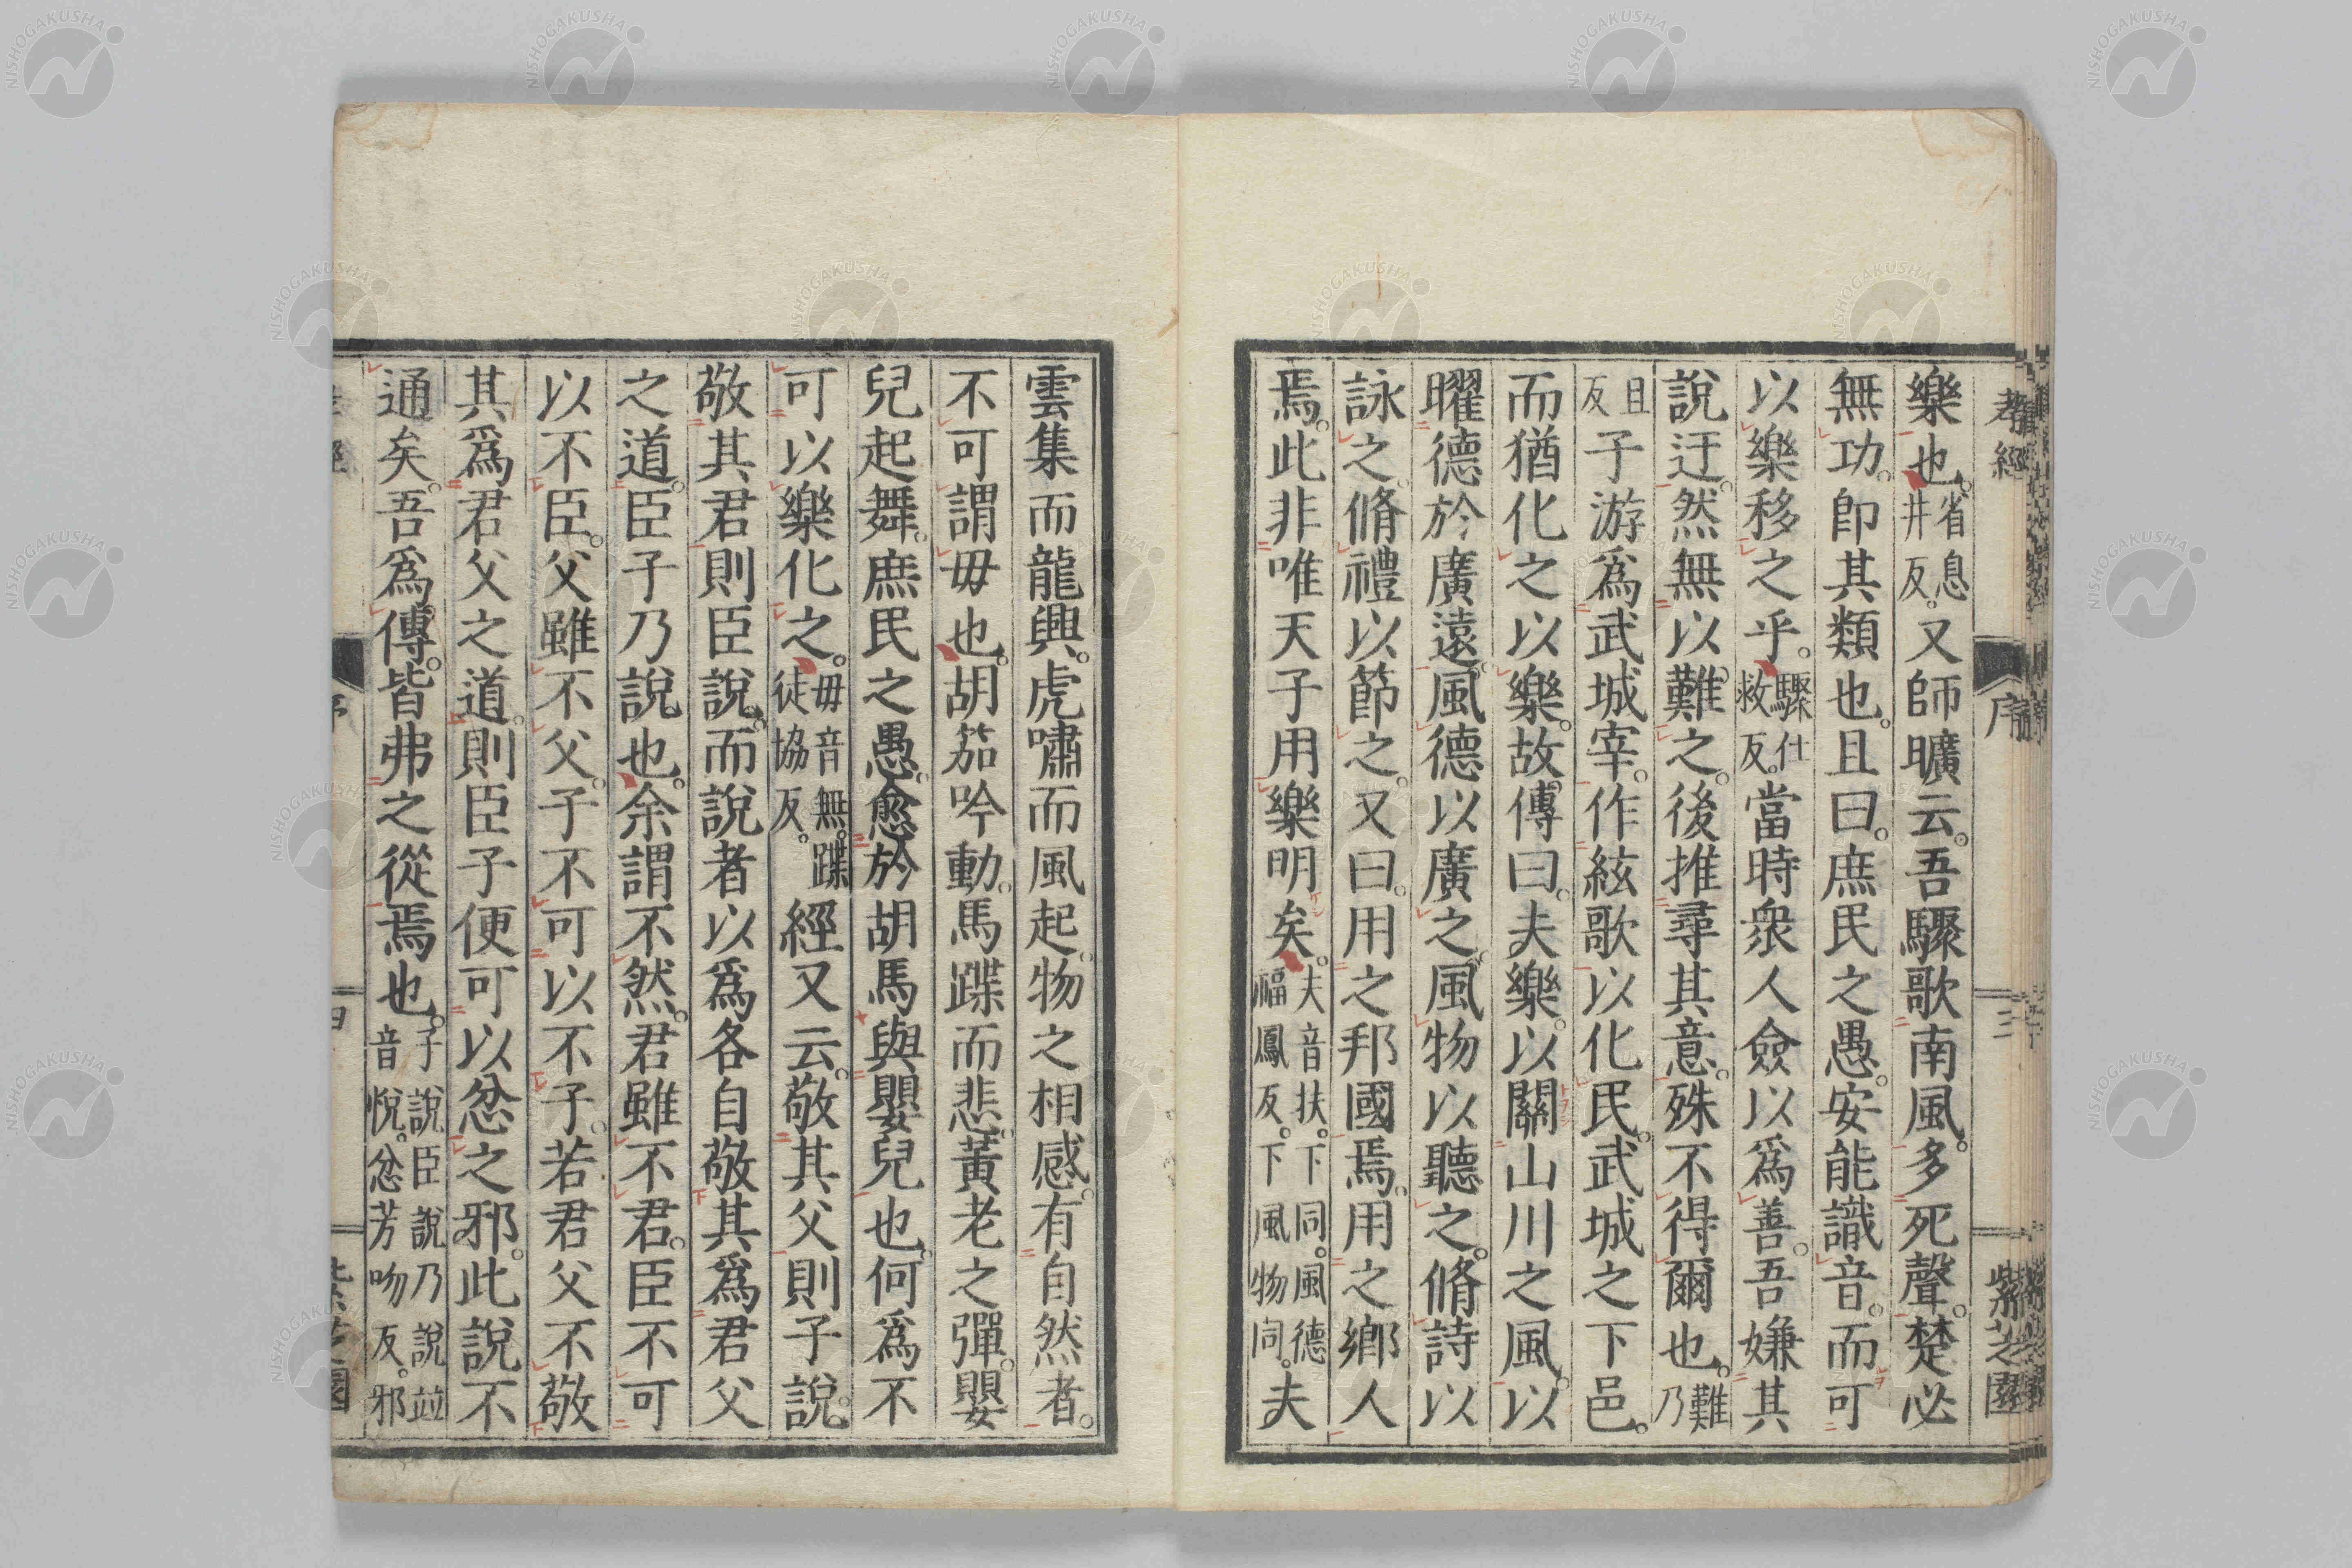 孝經
序
三
紫芝園
樂也。省息井反。又師曠云。吾驟歌南風。多死聲。楚必
無功。卽其類也。且曰。庶民之愚。安能識音。而可
以樂移之乎。驟仕救反。當時衆人僉以爲善。吾嫌其
說迂。然無以難之。後推尋其意。殊不得爾也。難乃
且反子游爲武城宰。作絃歌以化民。武城之下邑。
而猶化之以樂。故傳曰。夫樂。以關山川之風。以
曜德於廣遠。風德以廣之。風物以聽之。脩詩以
詠之。脩禮以節之。又曰。用之邦國焉。用之鄉人
焉。此非唯天子用樂明矣。夫音扶。下同。風德福鳳反。下風物同。夫
雲集而龍興。虎嘯而風起。物之相感。有自然者。
不可謂毋也。胡笳吟動。馬蹀而悲。黃老之彈。嬰
兒起舞。庶民之愚。愈於胡馬與嬰兒也。何爲不
可以樂化之。毋音無。蹀徒協反。經又云。敬其父則子說。
敬其君則臣說。而說者以爲各自敬其爲君父
之道。臣子乃說也。余謂不然。君雖不君。臣不可
以不臣。父雖不父。子不可以不子。若君父不敬
其爲君父之道。則臣子便可以忿之邪。此說不
通矣。吾爲傳。皆弗之從焉也。子說臣說乃說竝音悅。忿芳吻反。邪
NISHOGAKUSHA